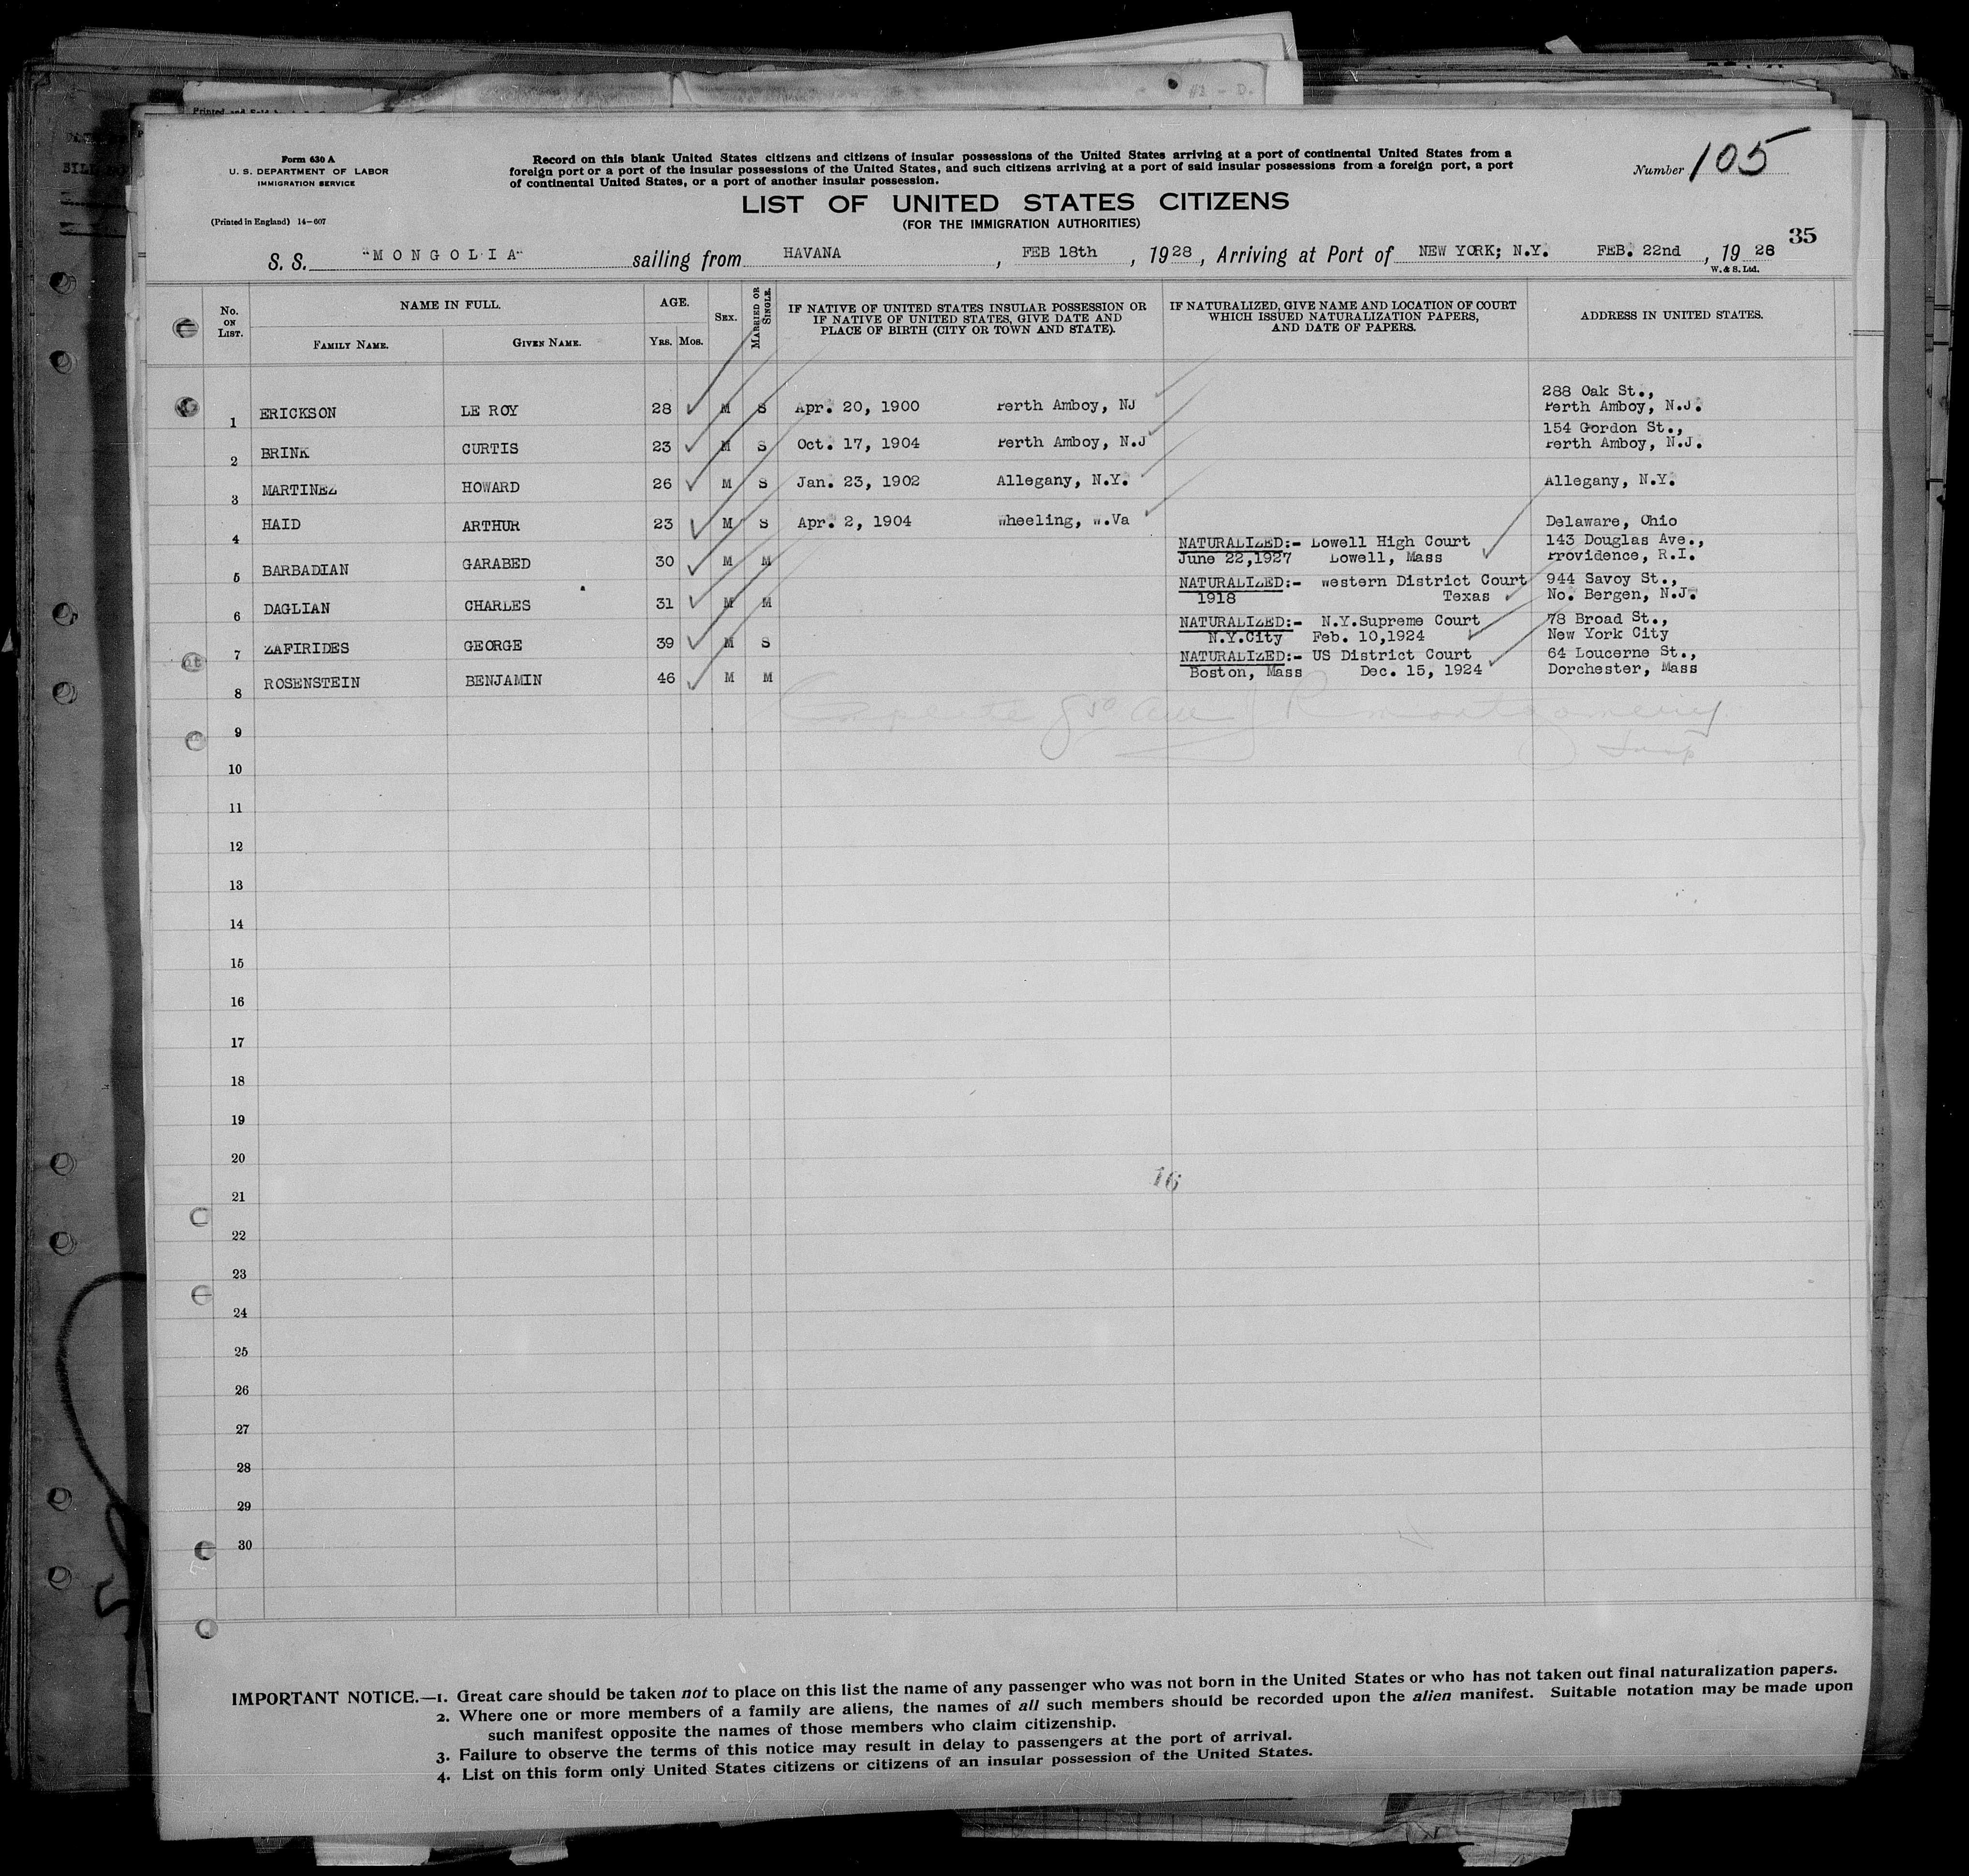 Form 630 A
U. S. DEPARTMENT OF LABOR
IMMIGRATION SERVICE
(Printed in England) 14-607
Record on this blank United States citizens and citizens of insular possessions of the United States arriving at a port of continental United States from a
foreign port or a port of the insular possessions of the United States, and such citizens arriving at a port of said insular possessions from a foreign port, a port
of continental United States, or a port of another insular possession.
Number 105
LIST OF UNITED STATES CITIZENS
(FOR THE IMMIGRATION AUTHORITIES)
35
S. S. "MONGOLIA" sailing from HAVANA, FEB 18th, 1928, Arriving at Port of NEW YORK; N.Y. FEB. 22nd, 1928
W. & S. Ltd.
No. ON LIST. NAME IN FULL. FAMILY NAME. GIVEN NAME. AGE. YRS. MOS. SEX. MARRIED OR SINGLE. IF NATIVE OF UNITED STATES INSULAR POSSESSION OR IF NATIVE OF UNITED STATES, GIVE DATE AND PLACE OF BIRTH (CITY OR TOWN AND STATE). IF NATURALIZED, GIVE NAME AND LOCATION OF COURT WHICH ISSUED NATURALIZATION PAPERS, AND DATE OF PAPERS. ADDRESS IN UNITED STATES.
288 Oak St.,
1 ERICKSON LE ROY 28 M S Apr. 20, 1900 Perth Amboy, NJ Perth Amboy, N.J.
154 Gordon St.,
2 BRINK CURTIS 23 M S Oct. 17, 1904 Perth Amboy, N.J Perth Amboy, N.J.
3 MARTINEZ HOWARD 26 M S Jan. 23, 1902 Allegany, N.Y. Allegany, N.Y.
4 HAID ARTHUR 23 M S Apr. 2, 1904 Wheeling, W.Va Delaware, Ohio
NATURALIZED:- Lowell High Court 143 Douglas Ave.,
5 BARBADIAN GARABED 30 M M June 22,1927 Lowell, Mass Providence, R.I.
NATURALIZED:- Western District Court 944 Savoy St.,
6 DAGLIAN CHARLES 31 M M 1918 Texas No. Bergen, N.J.
NATURALIZED:- N.Y.Supreme Court 78 Broad St.,
7 ZAFIRIDES GEORGE 39 M S N.Y.City Feb. 10,1924 New York City
NATURALIZED:- US District Court 64 Loucerne St.,
8 ROSENSTEIN BENJAMIN 46 M M Boston, Mass Dec. 15, 1924 Dorchester, Mass
Montgomery
Insp
9
10
11
12
13
14
15
16
17
18
19
20
16
21
22
23
24
25
26
27
28
29
30
IMPORTANT NOTICE.—1. Great care should be taken not to place on this list the name of any passenger who was not born in the United States or who has not taken out final naturalization papers.
2. Where one or more members of a family are aliens, the names of all such members should be recorded upon the alien manifest. Suitable notation may be made upon
such manifest opposite the names of those members who claim citizenship.
3. Failure to observe the terms of this notice may result in delay to passengers at the port of arrival.
4. List on this form only United States citizens or citizens of an insular possession of the United States.